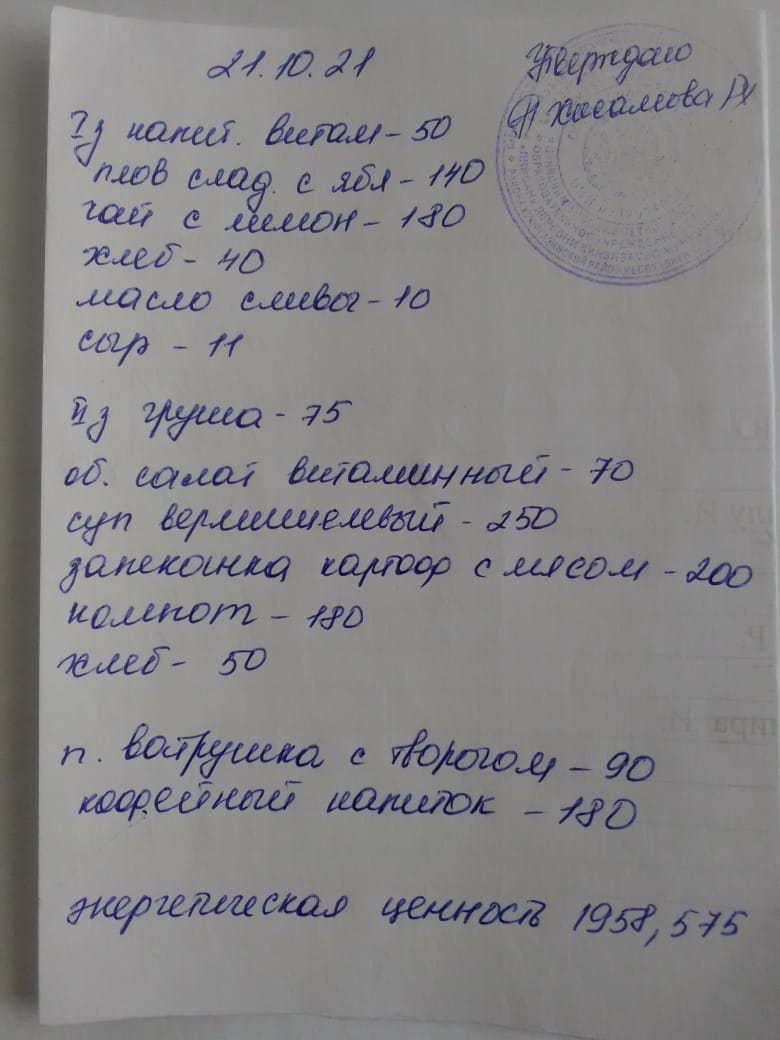 21.10.21
Утверждаю
Хисамова Р
I з напит. витам - 50
плов слад. с ябл - 140
чай с лимон - 180
хлеб - 40
масло сливоч - 10
сыр - 11
II з груша - 75
об. салат витаминный - 70
суп вермишелевый - 250
запеканка картоф с мясом - 200
компот - 180
хлеб - 50
п. ватрушка с творогом - 90
кофейный напиток - 180
энергетическая ценность 1958,575